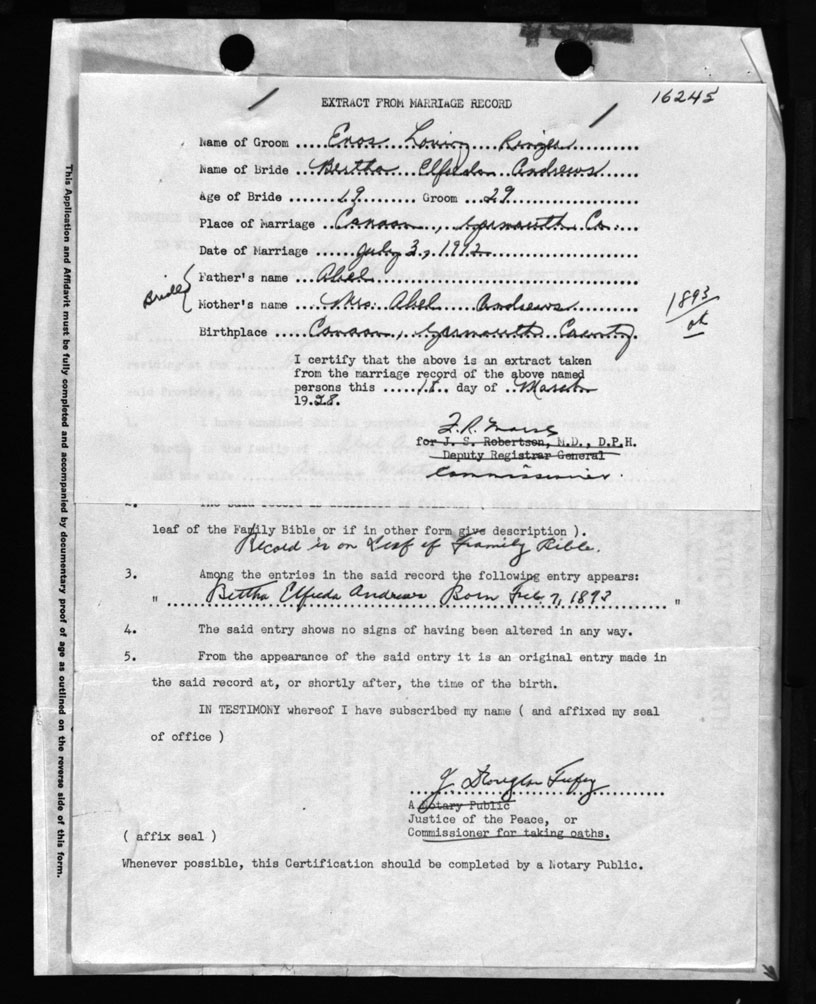 16245
EXTRACT FROM MARRIAGE RECORD
Name of Groom .... Enos Loring Ringer
Name of Bride .. Bertha Elfreda Andrews
Age of Bride ....... 19 ......... Groom ... 29
Place of Marriage .. Canaan, Yarmouth Co.
Date of Marriage ..... July 3, 1912
Brides { Father's name ... Abel
Mother's name .... Mrs. Abel Andrews
1893
Birthplace ..... Canaan, Yarmouth County.
I certify that the above is an extract taken
from the marriage record of the above named
persons this ..... 18 .. day of .. March
19.58.
for J. S. Robertson, M.D., D.P.H.
Deputy Registrar General
Commissioner.
2. The said record is
leaf of the Family Bible or if in other form give description ).
Record is on Leaf of Family Bible.
3. Among the entries in the said record the following entry appears:
" Bertha Elfreda Andrews Born Feb 7, 1893 "
4. The said entry shows no signs of having been altered in any way.
5. From the appearance of the said entry it is an original entry made in
the said record at, or shortly after, the time of the birth.
IN TESTIMONY whereof I have subscribed my name ( and affixed my seal
of office )
A Notary Public
Justice of the Peace, or
( affix seal ) Commissioner for taking oaths.
Whenever possible, this Certification should be completed by a Notary Public.
This Application and Affidavit must be fully completed and accompanied by documentary proof of age as outlined on the reverse side of this form.